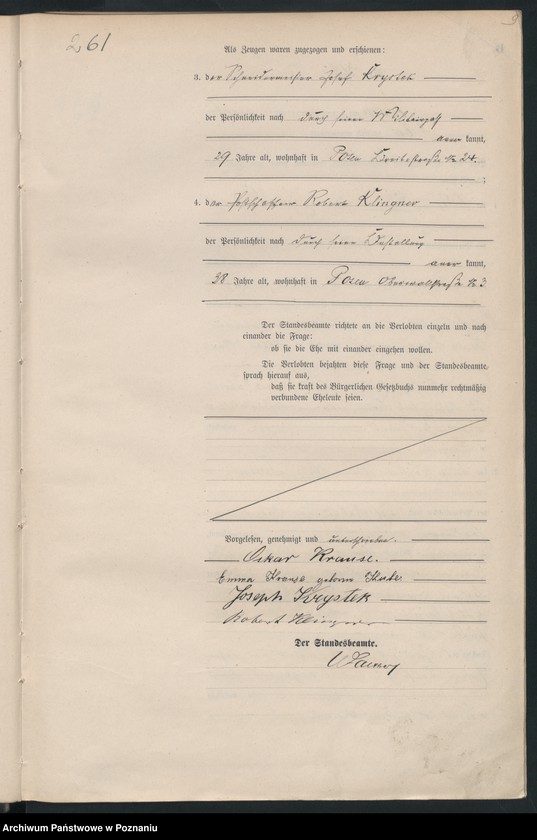 261
9
Als Zeugen waren zugezogen und erschienen:
3. der Schneidermeister Josef Krystek
der Persönlichkeit nach durch seinen Militairpaß
aner kannt,
29 Jahre alt, wohnhaft in Posen Breitestraße No 24.
;
4. der Robert Klingner
der Persönlichkeit nach durch seine Bestallung
aner kannt,
38 Jahre alt, wohnhaft in Posen Oberwallstraße No 3
Der Standesbeamte richtete an die Verlobten einzeln und nach
einander die Frage:
ob sie die Ehe mit einander eingehen wollen.
Die Verlobten bejahten diese Frage und der Standesbeamte
sprach hierauf aus,
daß sie kraft des Bürgerlichen Gesetzbuchs nunmehr rechtmäßig
verbundene Eheleute seien.
Vorgelesen, genehmigt und unterschrieben.
Oskar Krause.
Emma Krause geborene
Joseph Krystek
Robert Klingner
Der Standesbeamte.
Archiwum Państwowe w Poznaniu